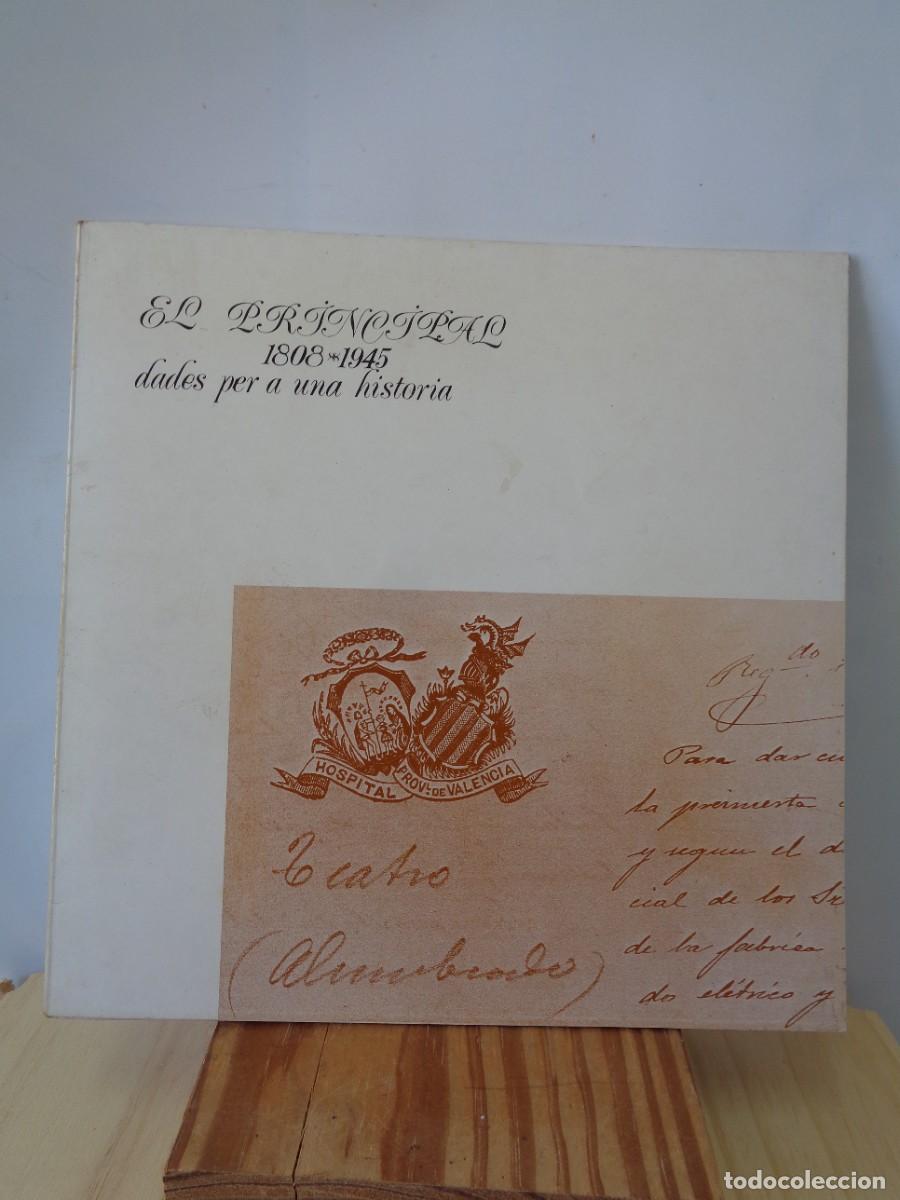 EL PRINCIPAL
1808*1945
dades per a una historia
HOSPITAL PROVL. DE VALENCIA
Teatro
(Alumbrado)
Regdo.
Para dar cu
la preinserta
y segun el d
cial de los Sr
de la fabrica
do eléctrico y
todocoleccion